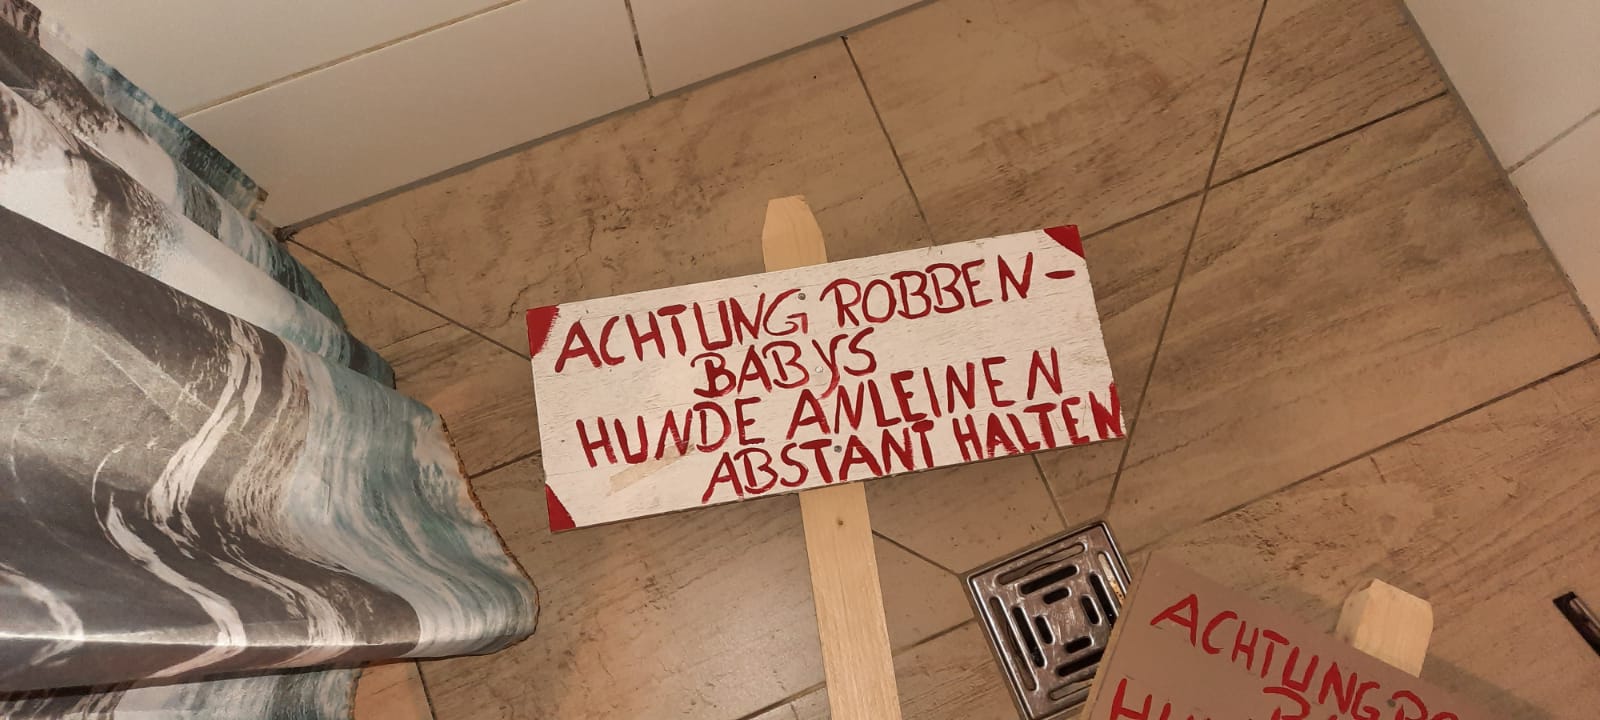 ACHTUNG ROBBEN-
BABYS
HUNDE ANLEINEN
ABSTANT HALTEN
ACHTUNG